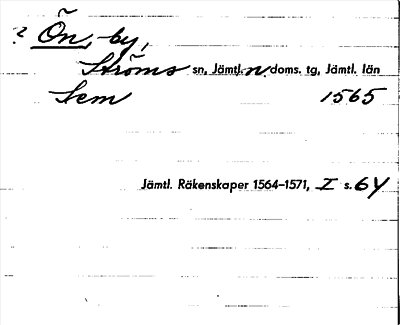 ? Ön, by,
Ströms sn, Jämtl. n. doms. tg, Jämtl. län
Sem 1565
Jämtl. Räkenskaper 1564-1571, I s. 64